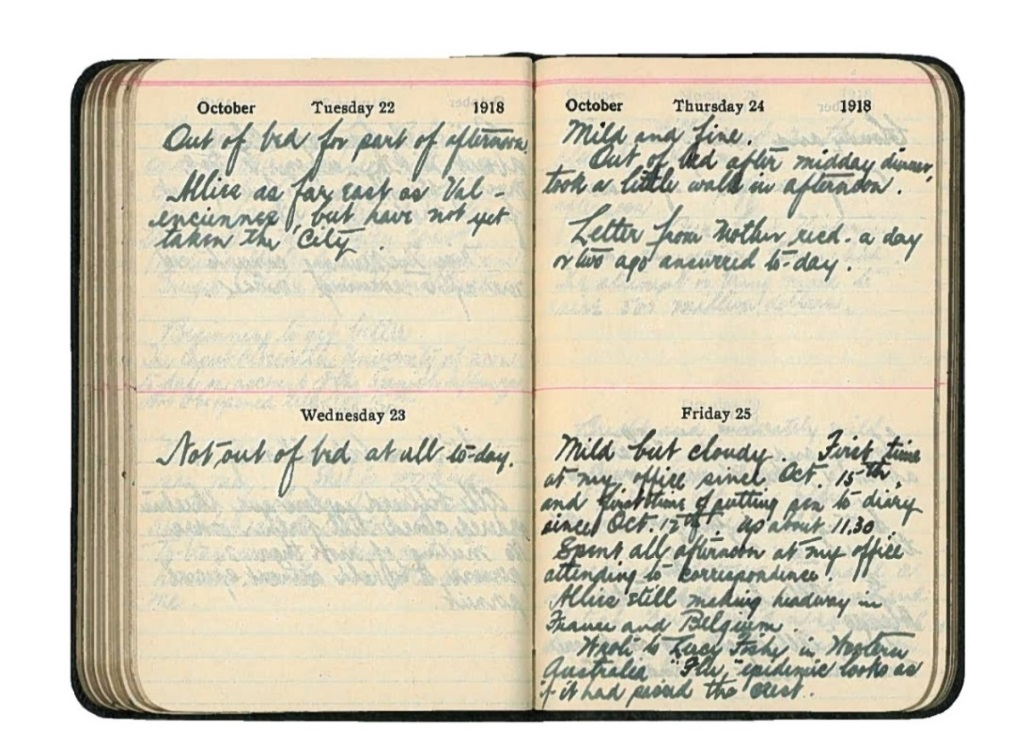 October Tuesday 22 1918
Out of bed for part of afternoon.
Allies as far east as Val-
enciennes, but have not yet
taken the City.
Wednesday 23
Not out of bed at all to-day.
October Thursday 24 1918
Mild and fine.
Out of bed after midday dinner,
took a little walk in afternoon.
Letter from Mother recd. a day
or two ago answered to-day.
Friday 25
Mild but cloudy. First time
at my office since Oct. 15th,
and first time of putting pen to diary
since Oct. 17th. Up about 11.30
Spent all afternoon at my office
attending to correspondence.
Allies still making headway in
France and Belgium
Wrote to Lucy in Western
Australia "Flu" epidemic looks as
if it had passed the crest.